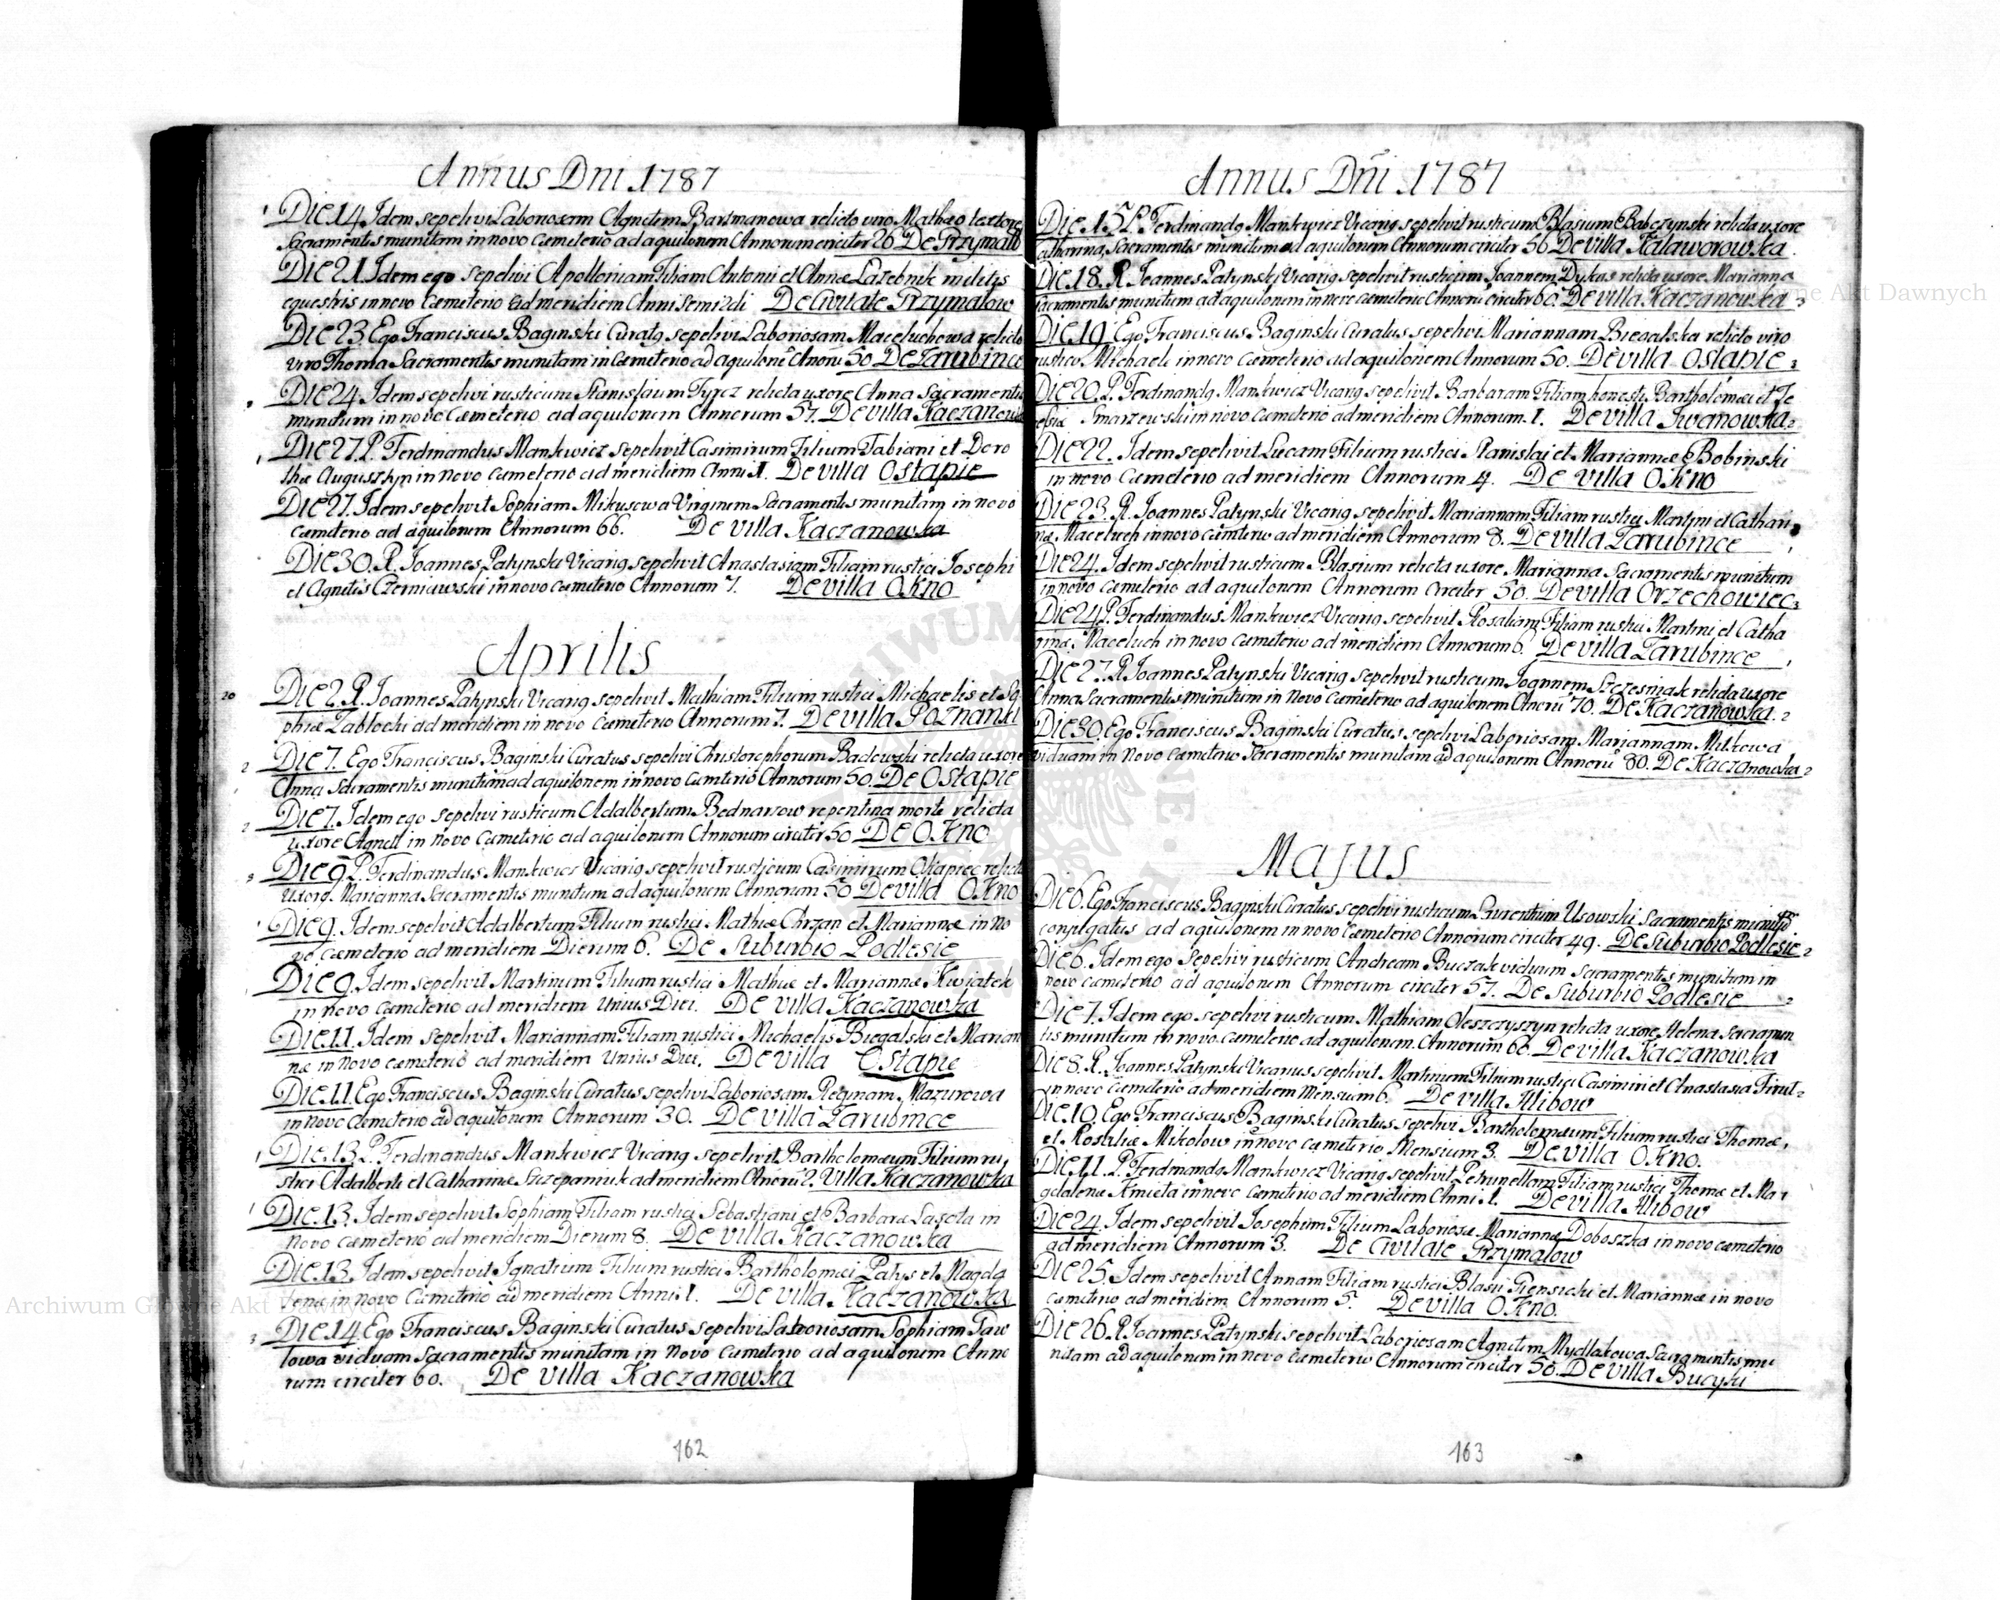 Annus Dni 1787
Die 14. Idem sepelivi Laboriosam Agnetem Bartmanowa relicto viro Mathæo textore
Sacramentis munitam in novo Cæmeterio ad aquilonem Annorum circiter 26 De Przymało
Die 21. Idem ego sepelivi Apolloniam Filiam Antonii et Annæ Lazebnik militis
equestris in novo Cæmeterio ad meridiem Anni semi 2di De Civitate Przymałow
Die 23. Ego Franciscus Baginski Curatg sepelivi Laboriosam Maceluchowa relicto
viro Thoma Sacramentis munitam in Cæmeterio ad aquilone Anoru 50. De Zarubince
Die 24. Idem sepelivi rusticum Stanislaum Tyrcz relicta uxore Anna Sacramentis
munitum in novo Cæmeterio ad aquilonem Annorum 57. De villa Kaczanows
Die 27. P. Ferdinandus Mankwicz sepelivit Casimirum Filium Fabiani et Doro
thæ Auguszhyn in novo Cæmeterio ad meridiem Anni 1. De villa Ostapie
Die 27. Idem sepelivit Sophiam Mikusewa Virginem Sacramentis munitam in novo
Cæmeterio ad aquilonem Annorum 66. De villa Kaczanowka
Die 30. R. Joannes Patynski Vicarig sepelivit Anastasiam Filiam rustici Josephi
et Agnetis Czerniawski in novo Cæmeterio Annorum 7. De villa Okno
Aprilis
20
Die 2. R. Joannes Patynski Vicarig sepelivit Mathiam Filium rustici Michaelis et So
phiæ Zablocki ad meridiem in novo Cæmeterio Annorum 7. De villa Poznanki
Die 7. Ego Franciscus Baginski Curatus sepelivi Christophorum Badowski relicta uxore
Anna Sacramentis munitum ad aquilonem in novo Cæmterio Annorum 50. De Ostapie
Die 7. Idem ego sepelivi rusticum Adalbertum Bednarzow repentina morte relicta
uxore Agnett in novo Cæmeterio ad aquilonem Annorum circiter 50 De Okno
Die 9 P. Ferdinandus Mankwicz Vicarig sepelivit rusticum Casimirum Ostapiec relicta
uxore Marianna Sacramentis munitum ad aquilonem Annorum 50 De villa Okno
Die 9. Idem sepelivit Adalbertum Filium rustici Mathiæ Chrzan et Mariannæ in no
vo Cæmeterio ad meridiem Dierum 6. De Suburbio Podlesie
Die 9. Idem sepelivit Martinum Filium rustici Mathiæ et Mariannæ Kwiatek
in novo Cæmeterio ad meridiem Unius Diei. De villa Kaczanowka
Die 11. Idem sepelivit Mariannam Filiam rustici Michaelis Biegalski et Marian
næ in novo cæmeterio ad meridiem Unius Diei. De villa Ostapie
Die 11. Ego Franciscus Baginski Curatus sepelivi Laboriosam Reginam Mazurowa
in novo Cæmeterio ad aquilonem Annorum 30. De villa Zarubince
Die 13. P. Ferdinandus Mankwicz Vicarig sepelivit Bartholomæum Filium ru
stici Adalberti et Catharinæ Szczepaniuk ad meridiem Anoru 2. Villa Kaczanowka
Die 13. Idem sepelivit Sophiam Filiam rustici Sebastiani et Barbara Lasota in
novo Cæmeterio ad meridiem Dierum 8. De villa Kaczanowka
Die 13. Idem sepelivit Ignatium Filium rustici Bartholomæi Patys et Magda
lenæ in novo Cæmeterio ad meridiem Anni 1. De villa Kaczanowka
Die 14. Ego Franciscus Baginski Curatus sepelivi Laboriosam Sophiam Paw
lowa viduam Sacramentis munitam in novo Cæmeterio ad aquilonem Anno
rum circiter 60. De villa Kaczanowka
162
Annus Dni 1787
Die 15 P. Ferdinandg Mankwicz Vicarig sepelivit rusticum Blasium Babczynski relicta uxore
Catharina, Sacramentis munitum ad aquilonem Annorum circiter 56 De villa Kalaworowka
Die 18. R. Joannes Patynski Vicarig sepelivit rusticum Joannem Dykas relicta uxore Marianna
Sacramentis munitum ad aquilonem in novo cæmeterio Annoru circiter 60. De villa Kaczanowka
Die 19 Ego Franciscus Baginski Curatus sepelivi Mariannam Biegalska relicto viro
rustico Michaele in novo Cæmeterio ad aquilonem Annorum 50. De villa Ostapie
Die 20. P. Ferdinandg Mankwicz Vicarig sepelivit Barbaram Filiam honesti Bartholomæi et Te
resiæ Smarzewski in novo Cæmeterio ad meridiem Annorum 1. De villa Iwanowka
Die 22. Idem sepelivit Lucam Filium rustici Stanislai et Mariannæ Bobinski
in novo Cæmeterio ad meridiem Annorum 4. De villa Okno
Die 23. R. Joannes Patynski Vicarig sepelivit Mariannam Filiam rustici Martini et Cathari
næ Maceluch in novo Cæmterio ad meridiem Annorum 8. De villa Zarubince
Die 24. Idem sepelivit rusticum Blasium relicta uxore Marianna Sacramentis munitum
in novo Cæmeterio ad aquilonem Annorum circiter 50. De villa Orzechowiec
Die 24 P. Ferdinandus Mankwicz Vicarig sepelivit Rosaliam Filiam rustici Martini et Catha
rinæ Maceluch in novo Cæmeterio ad meridiem Annorum 6. De villa Zarubince
Die 27. R. Joannes Patynski Vicarig sepelivit rusticum Joannem Szczesniak relicta uxore
Anna Sacramentis munitum in novo Cæmeterio ad aquilonem Anoru 70. De Kaczanowka
Die 30. Ego Franciscus Baginski Curatus sepelivi Laboriosam Mariannam Milkowa
viduam in novo Cæmeterio Sacramentis munitam ad aquilonem Annoru 80. De Kaczanowka
Majus
Die 6. Ego Franciscus Baginski Curatus sepelivi rusticum Laurentium Usowski Sacramentis munitg
conjugatus ad aquilonem in novo Cæmeterio Annorum circiter 49. De Suburbio Podlesie
Die 6. Idem ego sepelivi rusticum Andream Buczak viduum Sacramentis munitum in
novo Cæmeterio ad aquilonem Annorum circiter 57. De Suburbio Podlesie
Die 7. Idem ego sepelivi rusticum Mathiam Oleszczyszyn relicta uxore Helena Sacramen
tis munitum in novo Cæmeterio ad aquilonem Annorum 60. De villa Kaczanowka
Die 8. R. Joannes Patynski Vicarius sepelivit Martinum Filium rustici Casimiri et Anastasia
in novo Cæmeterio ad meridiem Mensium 6. De villa Alibow
Die 10. Ego Franciscus Baginski Curatus sepelivi Bartholomæum Filium rustici Thomæ
et Rosaliæ Mikolow in novo Cæmeterio Mensium 3. De villa Okno.
Die 11. P. Ferdinandg Mankwicz Vicarig sepelivit Petrunellam Filiam rustici Thomæ et Ma
gdalenæ Kmieta in novo Cæmeterio ad meridiem Anni 1. De villa Alibow
Die 24. Idem sepelivit Josephum Filium Laboriosæ Mariannæ Doboszka in novo cæmeterio
ad meridiem Annorum 3. De Civitate Przymałow
Die 25. Idem sepelivit Annam Filiam rustici Blasii et Mariannæ in novo
cæmeterio ad meridiem Annorum 5. De villa Okno.
Die 26. R. Joannes Patynski sepelivit Laboriosam Agnetem Mydlakowa Sacramentis mu
nitam ad aquilonem in novo Cæmeterio Annorum circiter 50. De villa Bucyki
163
Archiwum Główne Akt Dawnych